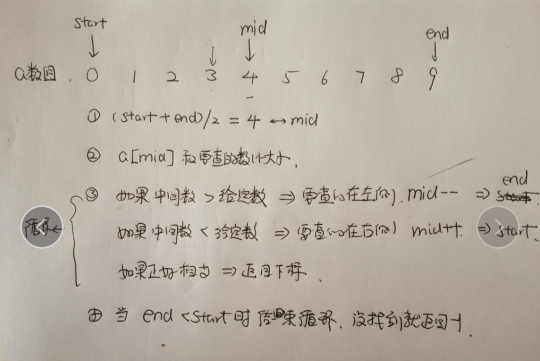 start mid end
a数组. 0 1 2 3 4 5 6 7 8 9
① (start + end)/2 = 4 ↔ mid
② a[mid] 和要查的数比大小.
③ 如果中间数 > 给定数 ⇒ 要查的在左侧. mid-- ⇒ end
循环← 如果中间数 < 给定数 ⇒ 要查的在右侧) mid++. ⇒ start.
如果正好相等 ⇒ 返回下标.
④ 当 end < start 时 结束循环. 没找到就返回-1.